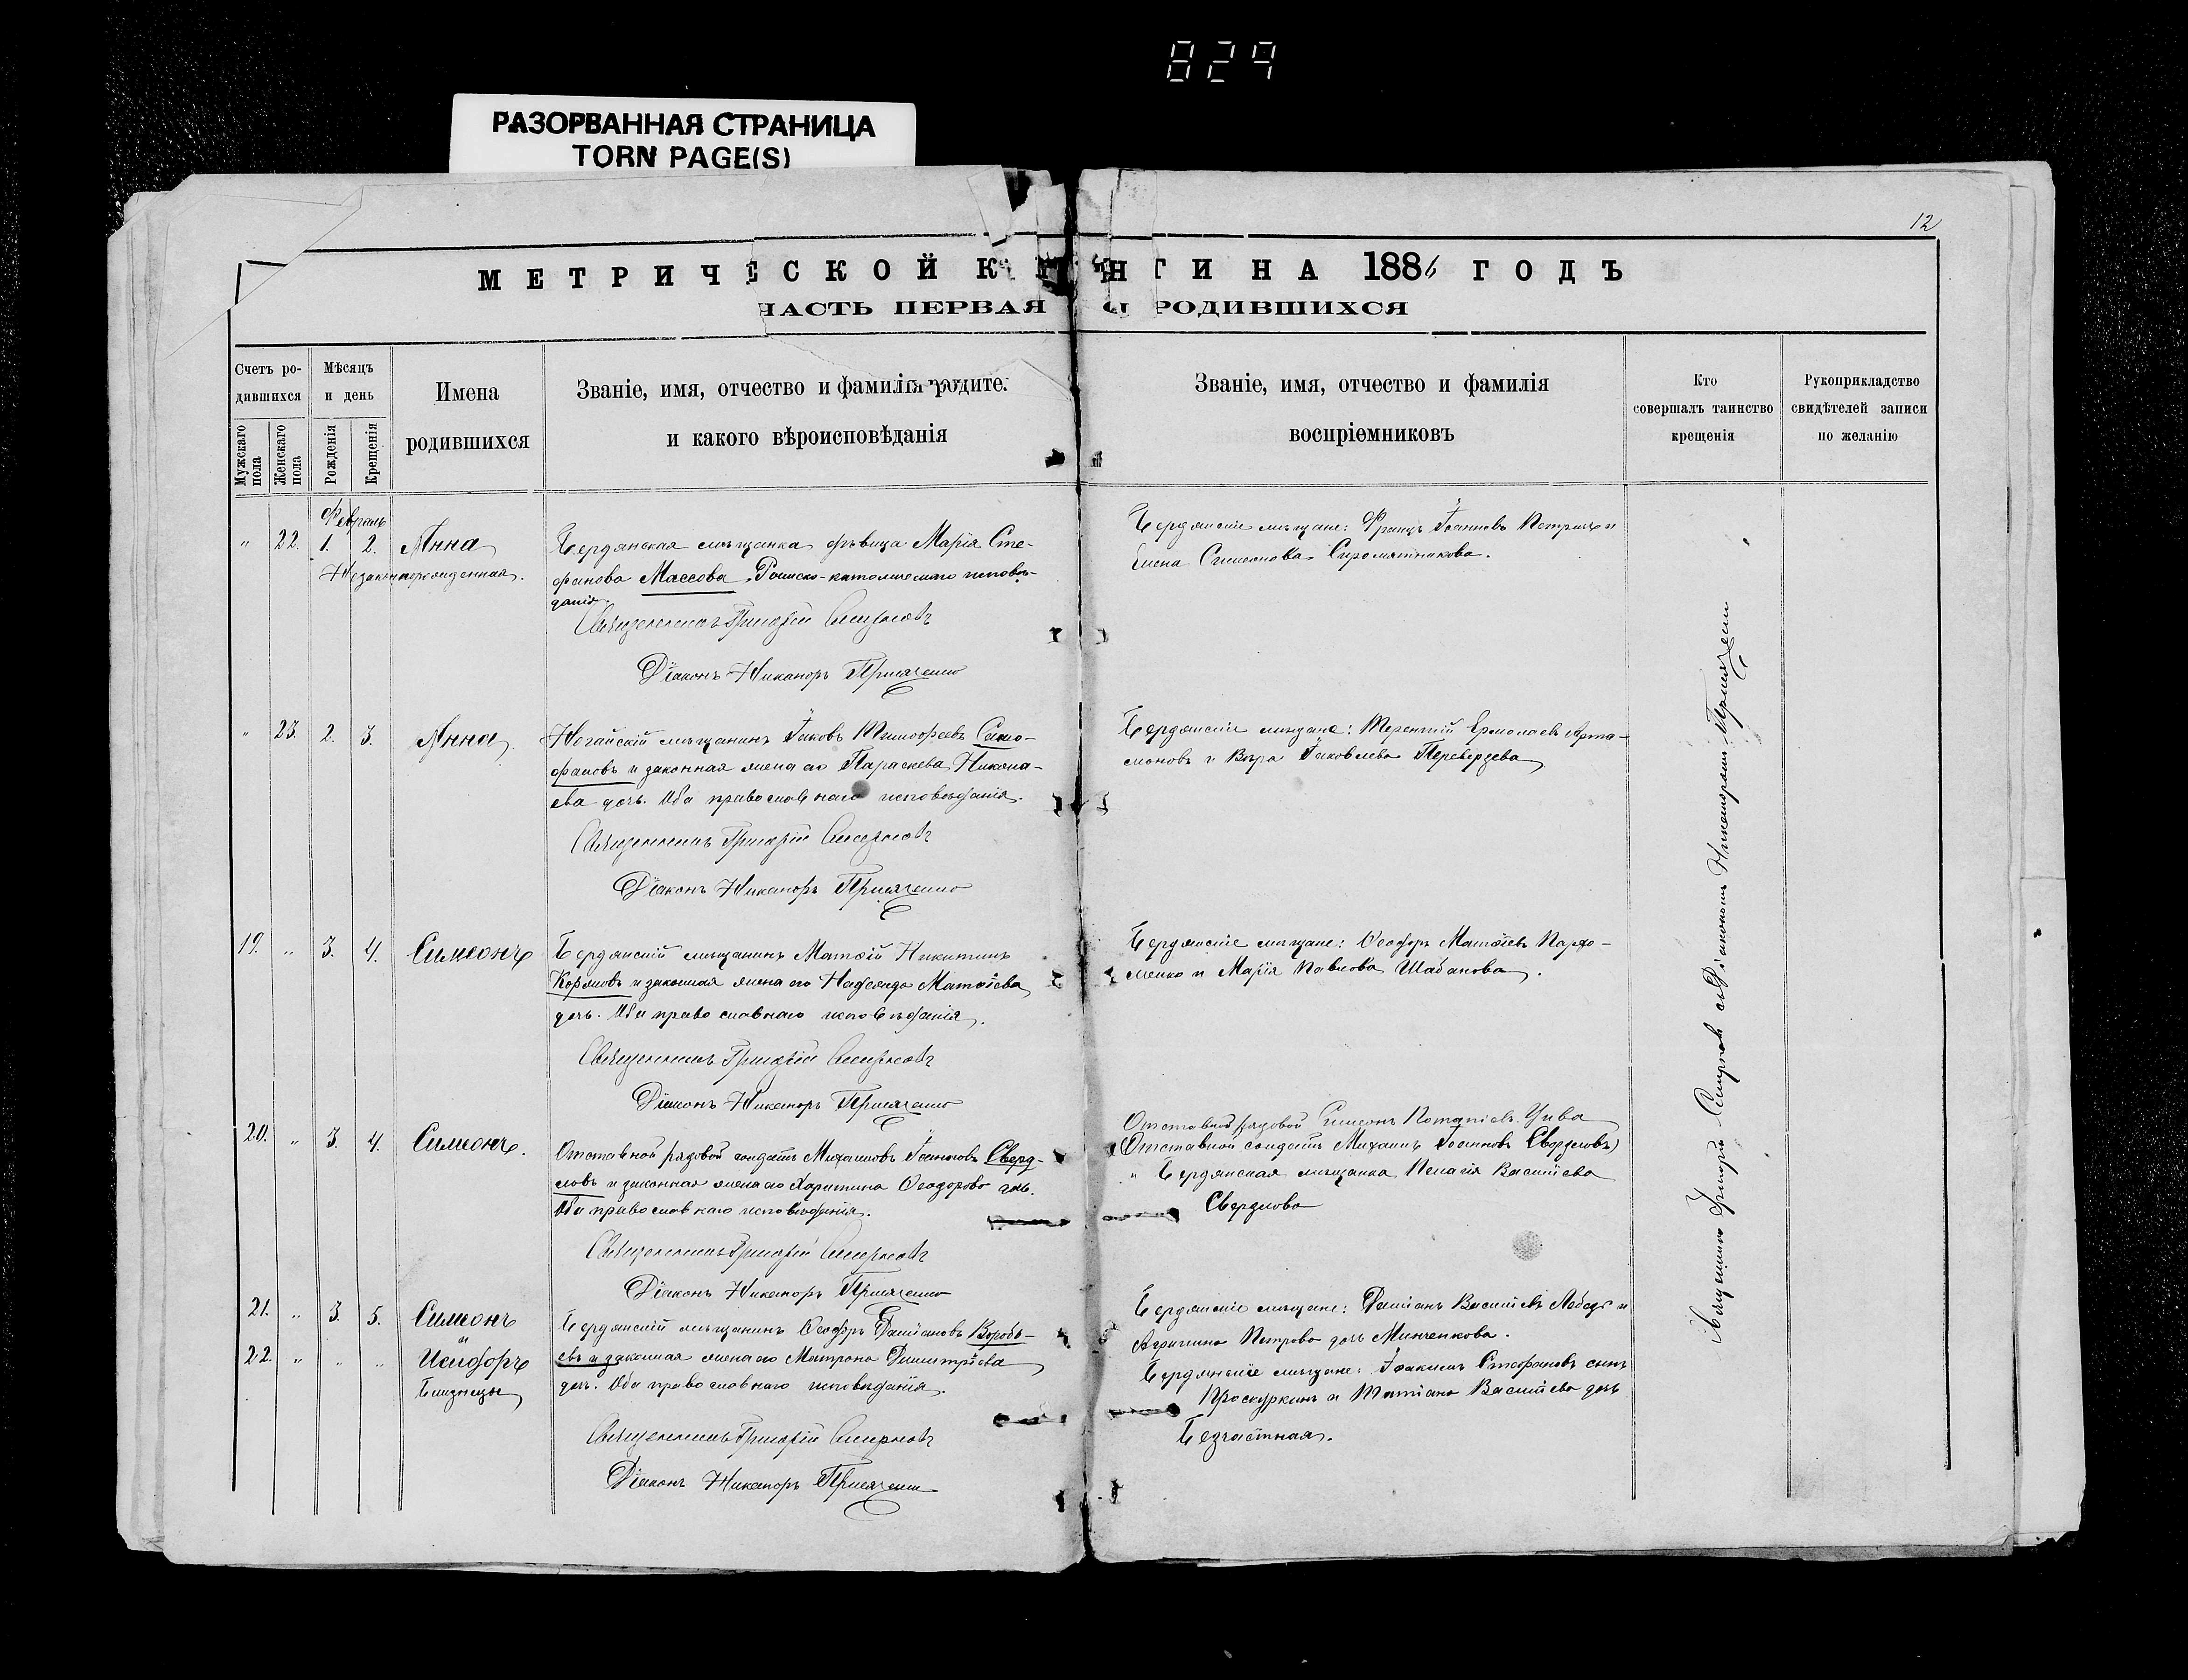 829
РАЗОРВАННАЯ СТРАНИЦА
TORN PAGE(S)
12
МЕТРИЧЕСКОЙ К НИГИ НА 1886 ГОДЪ
ЧАСТЬ ПЕРВАЯ О РОДИВШИХСЯ
Счетъ ро-
дившихся
Мужскаго пола
Женскаго пола
Мѣсяцъ
и день
Рожденія
Крещенія
Имена
родившихся
Званіе, имя, отчество и фамилія родите.
и какого вѣроисповѣданія
Званіе, имя, отчество и фамилія
воспріемниковъ
Кто
совершалъ таинство
крещенія
Рукоприкладство
свидѣтелей записи
по желанію
Февраль
" 22. 1. 2. Анна
Незаконнорожденная.
Бердянская мѣщанка дѣвица Марія Сте-
фанова Массова Римско-католическаго исповѣ-
данія.
Священникъ Григорій Смирновъ
Діаконъ Никаноръ
Бердянскіе мѣщане: Францъ Іоанновъ и
Елена Симеонова Сыромятникова.
" 23. 2. 3. Анна.
Ногайскій мѣщанинъ Іаковъ Тимофеевъ
и законная жена его Параскева
ева дочь. Оба православнаго исповѣданія.
Священникъ Григорій Смирновъ
Діаконъ Никаноръ
Бердянскіе мѣщане: Терентій Ермолаевъ Арта-
моновъ и Вѣра Іаковлева Переверзева
19. " 3. 4. Симеонъ
Бердянскій мѣщанинъ Матѳій Никитинъ
и законная жена его Надежда Матѳіева
дочь. Оба православнаго исповѣданія.
Священникъ Григорій Смирновъ
Діаконъ Никаноръ
Бердянскіе мѣщане: Ѳеодоръ Матѳіевъ Пархо-
менко и Марія Павлова Шабанова.
20. " 3. 4. Симеонъ.
Отставной рядовой солдатъ Михаиловъ Іоанновъ Сверд-
ловъ и законная жена его Харитина Ѳеодорова дочь.
Оба православнаго исповѣданія.
Священникъ Григорій Смирновъ
Діаконъ Никаноръ
Отставной рядовой Симеонъ
(Отставной солдатъ Михаилъ Іоанновъ Свердловъ)
и Бердянская мѣщанка Пелагія Васильева
Свердлова
21. " 3. 5. Симеонъ
и
22. " " " Исидоръ
Близнецы
Бердянскій мѣщанинъ Ѳеодоръ Даміановъ Воробь-
евъ и законная жена его Матрона Димитріева
дочь. Оба православнаго исповѣданія.
Священникъ Григорій Смирновъ
Діаконъ Никаноръ
Бердянскіе мѣщане: Даміанъ Васильевъ Лебедь и
Агрипина Петрова дочь Минченкова.
Бердянскіе мѣщане: Іоакимъ Стефановъ сынъ
Проскуркинъ и Татіана Васильева дочь
Безчастная.
Священникъ Григорій Смирновъ съ Діакономъ Никаноромъ